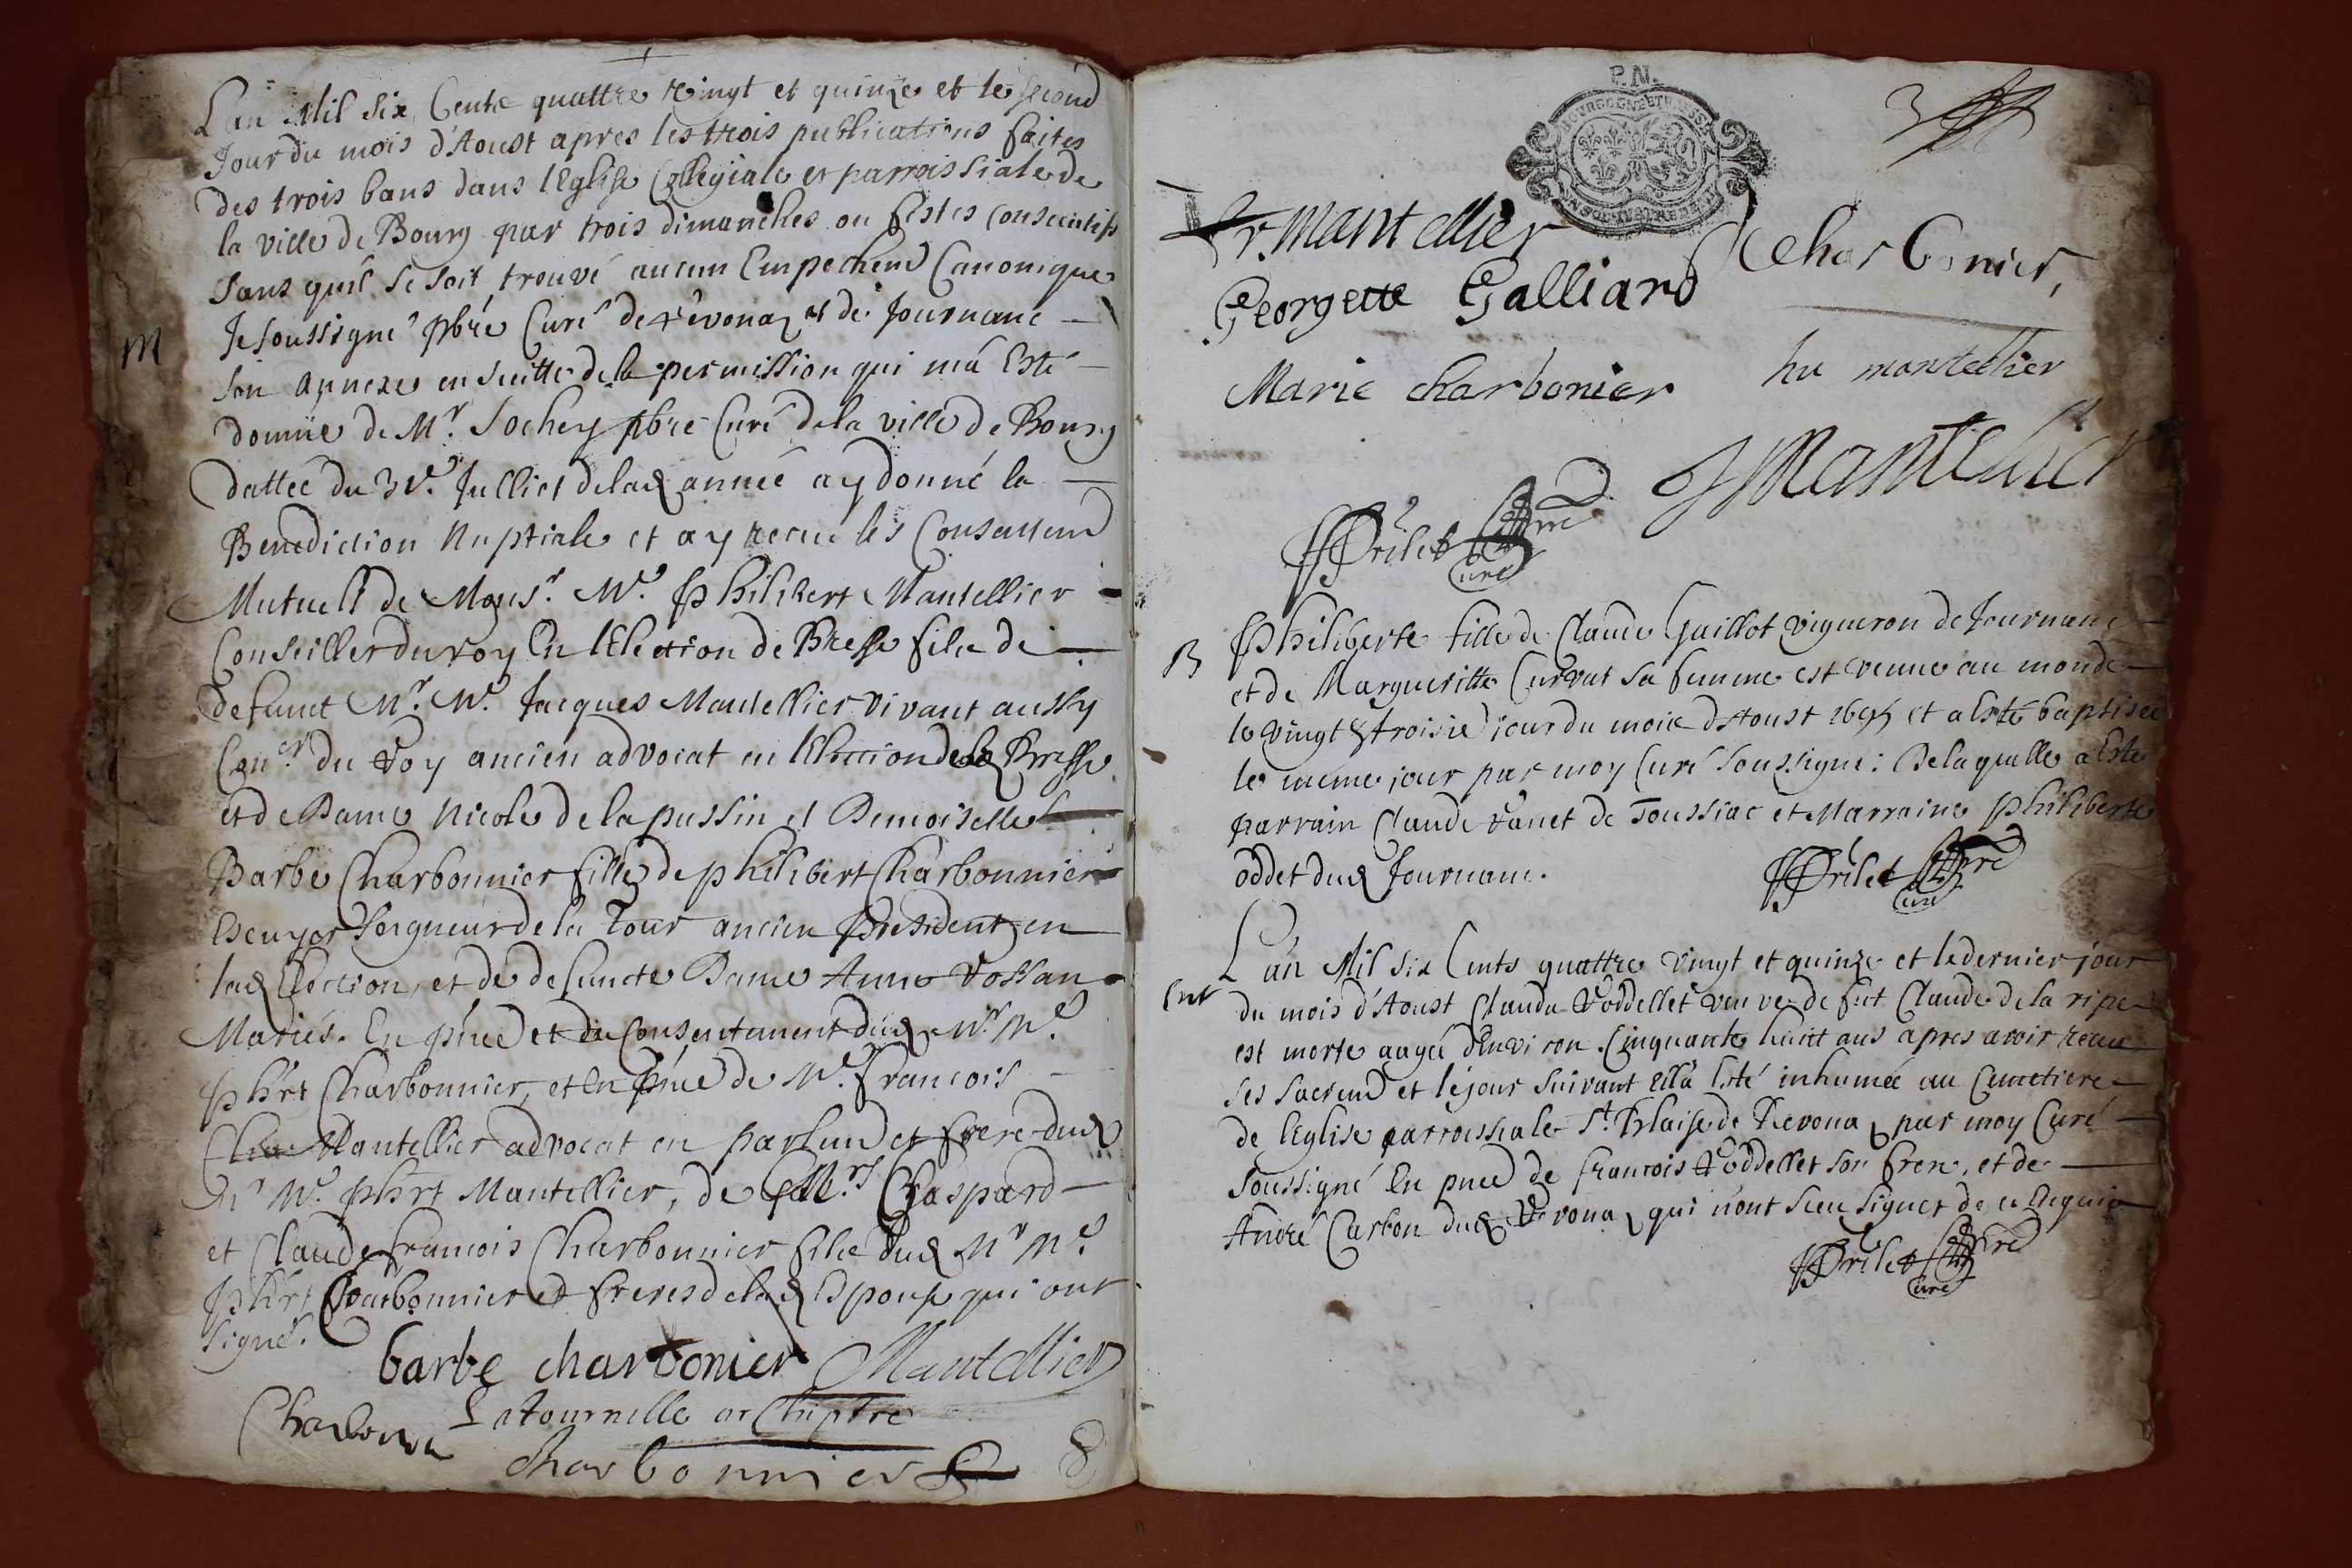 L'an Mil six Cents quattre vingt et quinze et le second
Jour du mois d'Aoust apres les trois publications faites
des trois bans dans l'Eglise Collegiale et parroissiale de
la ville de Bourg par trois dimanches ou festes consecutifs
sans quil se soit trouvé aucun Empechend Canonique
Je soussigné pbre Curé de revonaz et de Journanc
son annexe en suitte de la permission qui ma Esté
donnée de Mr. Sochey pbre Curé de la ville de Bourg
dattée du 31e. Julliet delad année ay donné la
Benediction Nuptiale et ay receu les Consentend
Mutuels de Monsr. Me. Philibert Mantellier
Conseiller du roy En l'Election de Bresse fils de
defunct Mr. Me. Jacques Mantellier vivant aussy
Conser. du Roy ancien advocat en l'Election de Bresse
et de Dame Nicole de la pussin et Demoiselle
Barbe Charbonnier fille de philibert Charbonnier
Escuyer Seigneur de la Tour ancien President en
lad Election, et de defuncte Dame Anne Vossan
Mariés. En pnce et du Consentement dud Mr Me.
phrt Charbonnier, et en pnce de Me. Francois
Mantellier advocat en parlend et frere dud
Mr Me. phrt Mantellier, de Mrs Gaspard
et Claude francois Charbonnier fils dud Mr Me.
phrt Charbonnier et freres delad Espouse qui ont
signé.
M
barbe charbonier Mantellier
Charbonnier Latournelle archiptre
charbonnier
8
P.N.
3
fr. Mantellier Charbonier,
Georgette Galliard
Marie charbonier hu mantellier
Mantellier
Prilet pre
Curé
B
Philiberte fille de Claude Guillot vigneron de Journanc
et de Margueritte Curvat sa femme est venue au monde
le vingt & troisie jour du mois d'Aoust 1695 et a Esté baptisée
le meme jour par moy Curé soussigné: De laquelle a Esté
parrain Claude vanet de Toussiac et Marraine Philiberte
oddet dud Journanc.
Prilet pre
Curé
L'an Mil six Cents quattre vingt et quinze et le dernier jour
Ent
du mois d'Aoust Clauda Voddellet veuve de fut Claude de la ripe
est morte aagée d'Environ Cinquante huict ans apres avoir receu
ses sacrend et le jour suivant Ella Esté inhumée au Cemetiere
de l'Eglise parroissiale St. Blaise de Revonaz par moy Curé
soussigné En pnce de francois Voddellet son frere, et de
André Carbon dud Revonaz qui n'ont sceu signer de ce Enquis
Prilet pre
Curé